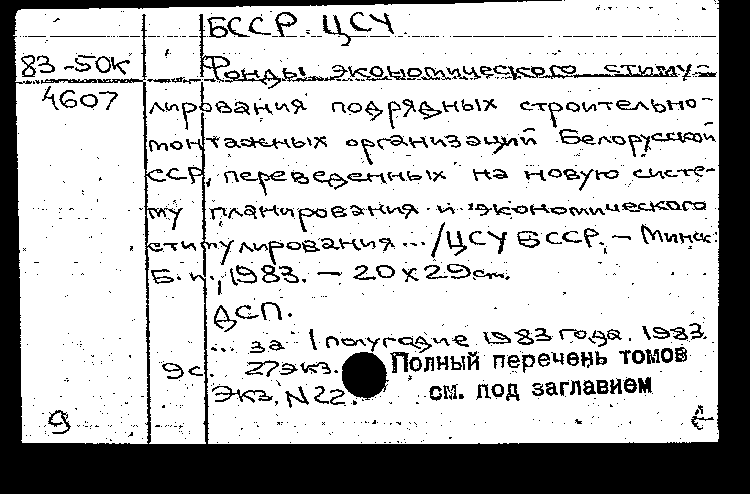 БССР. ЦСУ.
83-50к Фонды экономического стиму-
4607 лирования подрядных строительно-
монтажных организаций Белорусской
ССР, переведенных на новую систе-
му планирования и экономического
стимулирования... /ЦСУ БССР. - Минск:
Б.и., 1983. - 20 x 29см.
ДСП.
... за 1 полугодие 1983 года. 1983.
9с. 27экз. Полный перечень томов
Экз. N 22. см. под заглавием
9